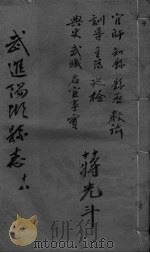 官師 知縣 縣丞 教諭
訓導 主簿 巡檢
典史 武職 名宦事實
蔣光斗
武進陽湖縣志 十八